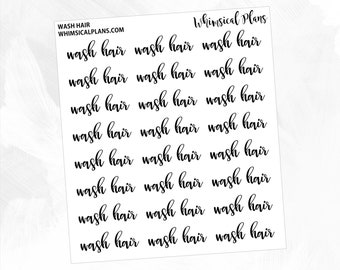 WASH HAIR
WHIMSICALPLANS.COM
Whimsical Plans
wash hair wash hair wash hair
wash hair wash hair wash hair
wash hair wash hair wash hair
wash hair wash hair wash hair
wash hair wash hair wash hair
wash hair wash hair wash hair
wash hair wash hair wash hair
wash hair wash hair wash hair